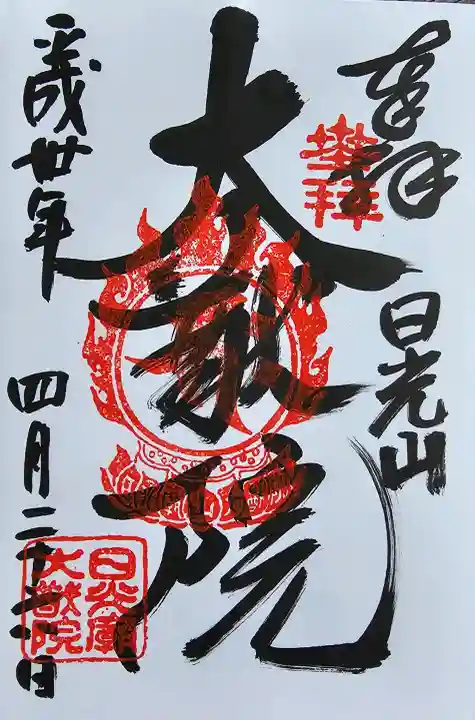 奉拝
日光山
大猷院
平成丗年
四月二十日
日光廟
大猷院